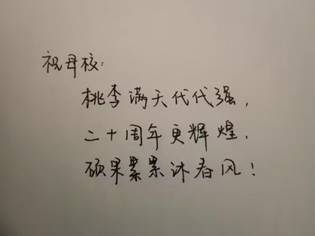 祝母校：
桃李满天代代强，
二十周年更辉煌，
硕果累累沐春风！